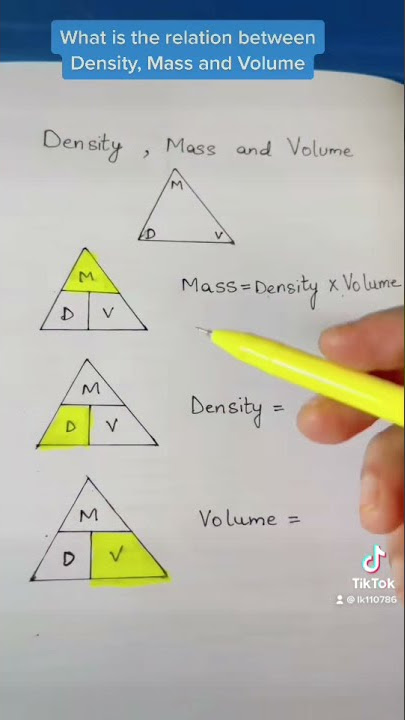 What is the relation between
Density, Mass and Volume
Density , Mass and Volume
M
D V
M
D V
Mass = Density x Volume
M
D V
Density =
M
D V
Volume =
TikTok
@lk110786